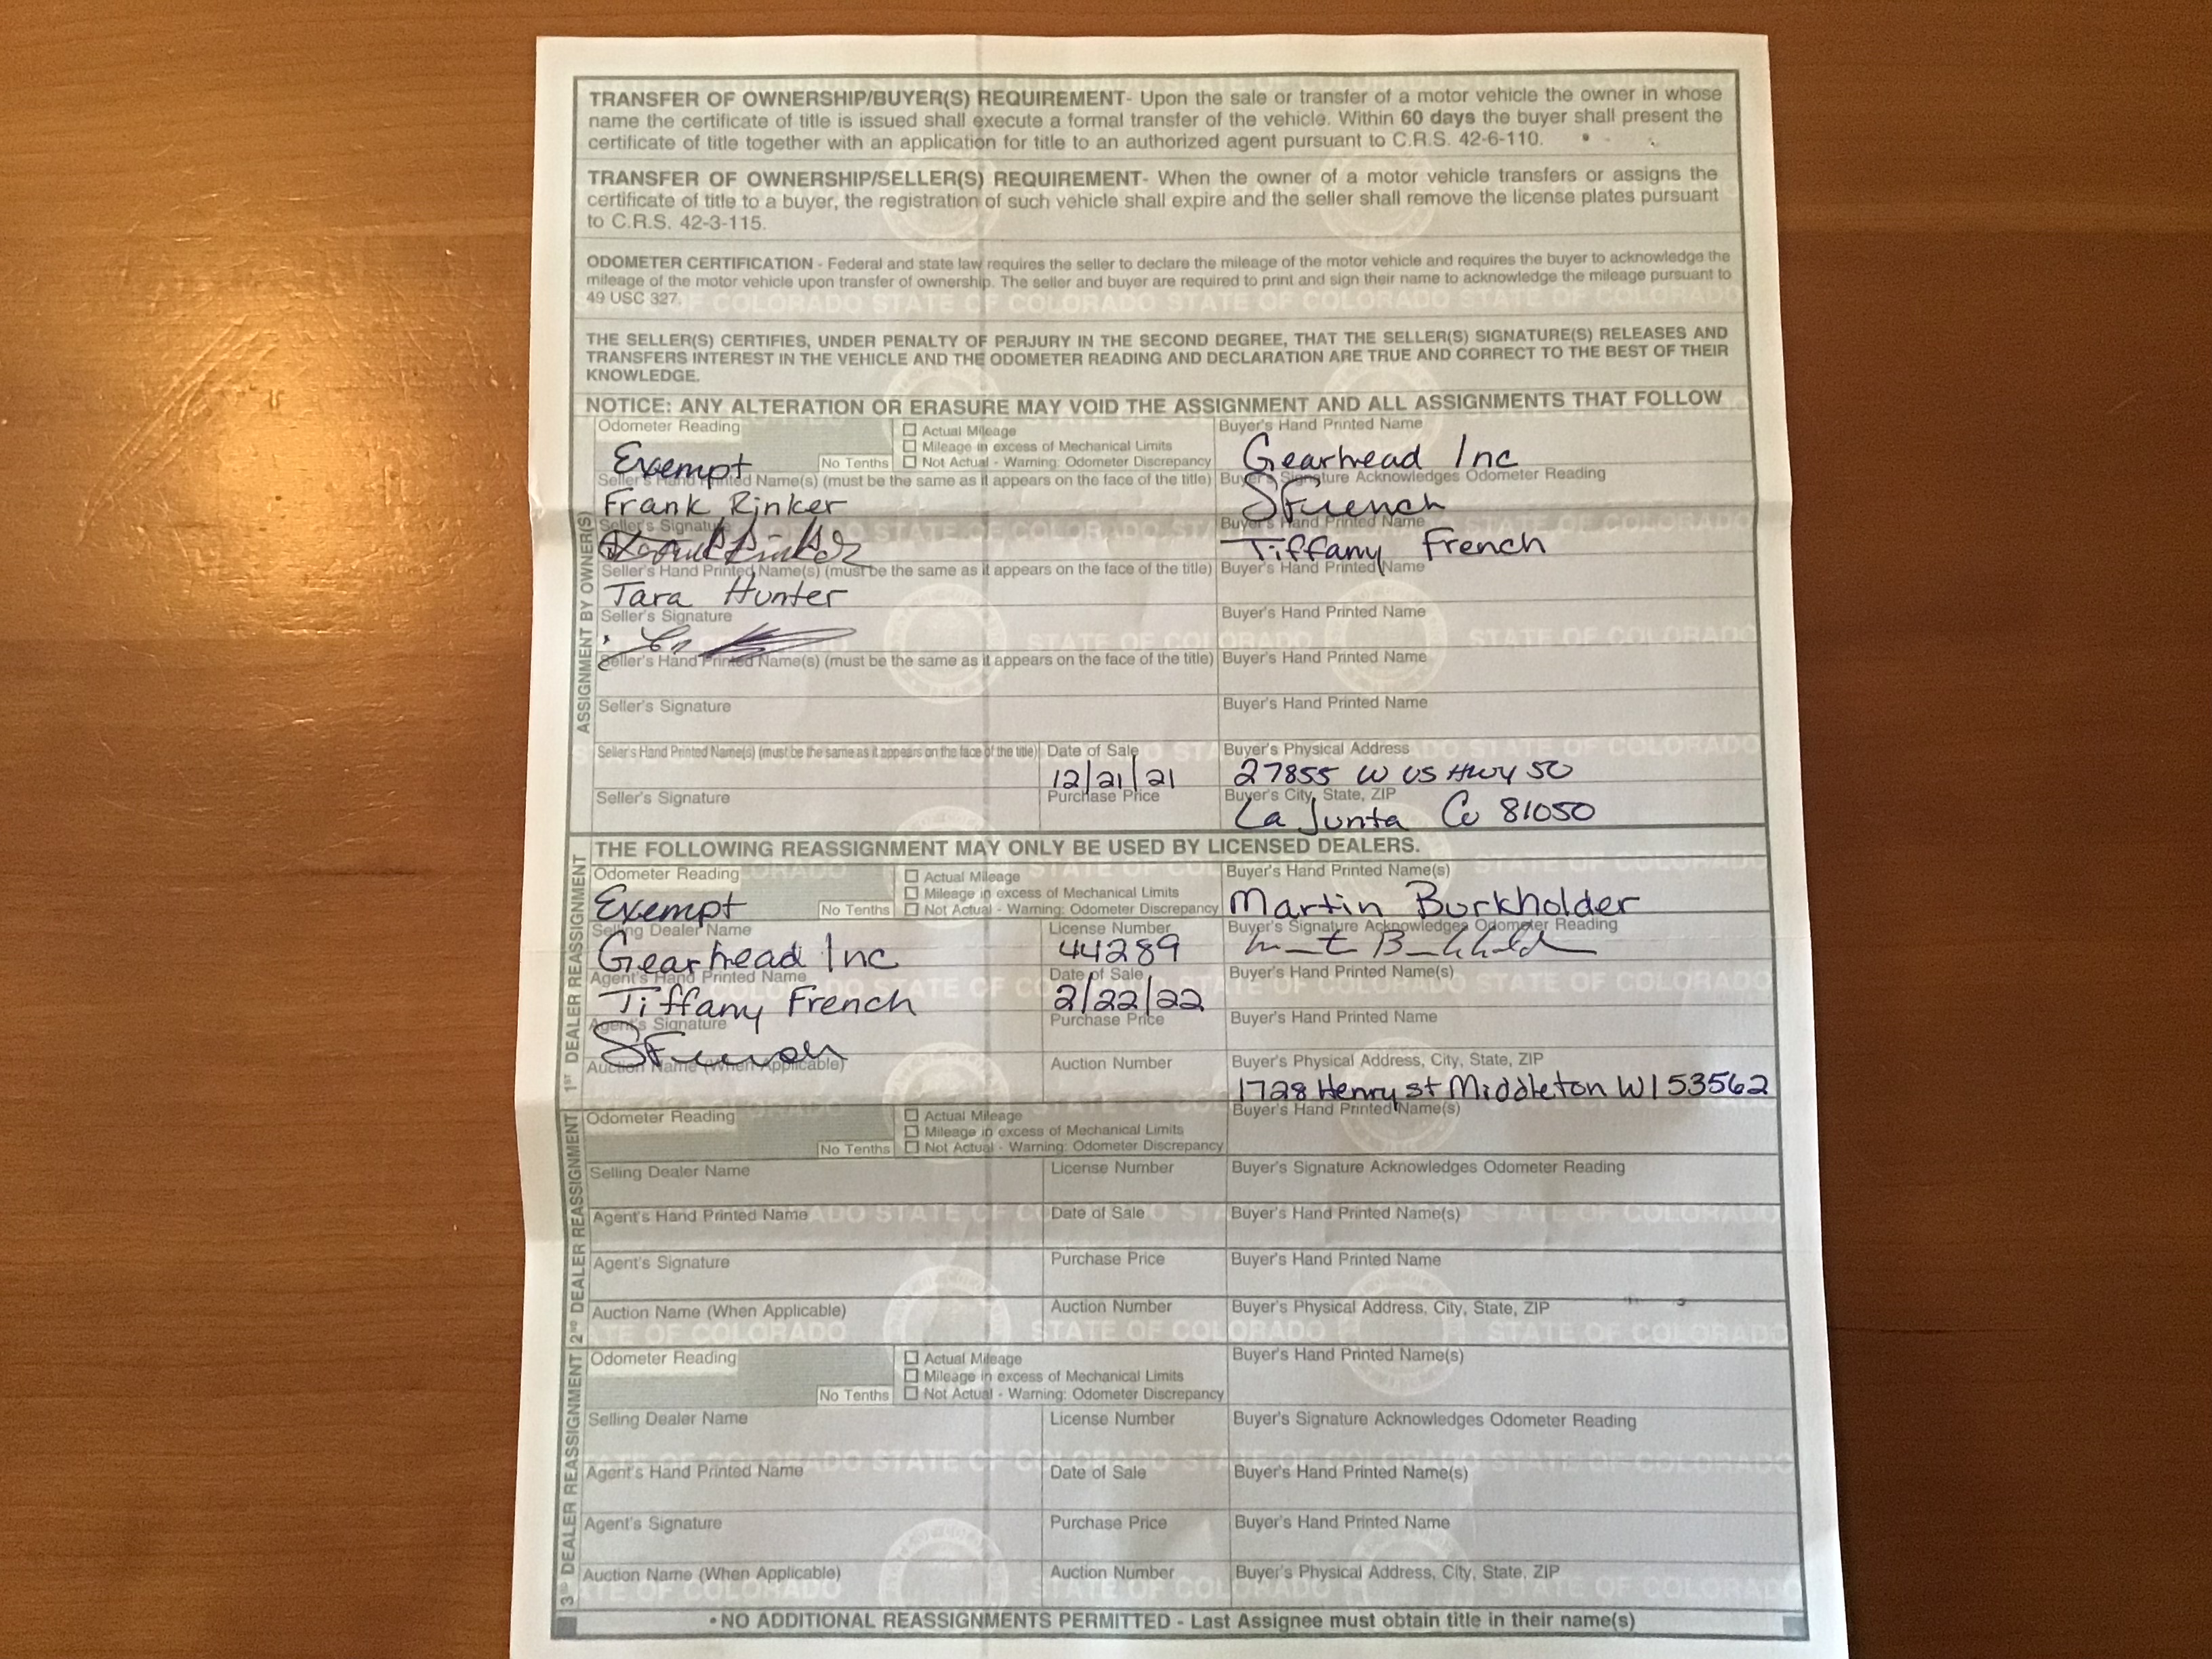 TRANSFER OF OWNERSHIP/BUYER(S) REQUIREMENT- Upon the sale or transfer of a motor vehicle the owner in whose
name the certificate of title is issued shall execute a formal transfer of the vehicle. Within 60 days the buyer shall present the
certificate of title together with an application for title to an authorized agent pursuant to C.R.S. 42-6-110.
TRANSFER OF OWNERSHIP/SELLER(S) REQUIREMENT- When the owner of a motor vehicle transfers or assigns the
certificate of title to a buyer, the registration of such vehicle shall expire and the seller shall remove the license plates pursuant
to C.R.S. 42-3-115.
ODOMETER CERTIFICATION - Federal and state law requires the seller to declare the mileage of the motor vehicle and requires the buyer to acknowledge the
mileage of the motor vehicle upon transfer of ownership. The seller and buyer are required to print and sign their name to acknowledge the mileage pursuant to
49 USC 327.
THE SELLER(S) CERTIFIES, UNDER PENALTY OF PERJURY IN THE SECOND DEGREE, THAT THE SELLER(S) SIGNATURE(S) RELEASES AND
TRANSFERS INTEREST IN THE VEHICLE AND THE ODOMETER READING AND DECLARATION ARE TRUE AND CORRECT TO THE BEST OF THEIR
KNOWLEDGE.
NOTICE: ANY ALTERATION OR ERASURE MAY VOID THE ASSIGNMENT AND ALL ASSIGNMENTS THAT FOLLOW
ASSIGNMENT BY OWNER(S)
Odometer Reading
Exempt
No Tenths
Actual Mileage
Mileage in excess of Mechanical Limits
Not Actual - Warning: Odometer Discrepancy
Buyer's Hand Printed Name
Gearhead Inc
Seller's Hand Printed Name(s) (must be the same as it appears on the face of the title)
Frank Rinker
Buyer's Signature Acknowledges Odometer Reading
SFrench
Seller's Signature
Frank Rinker
Buyer's Hand Printed Name
Tiffany French
Seller's Hand Printed Name(s) (must be the same as it appears on the face of the title)
Tara Hunter
Buyer's Hand Printed Name
Seller's Signature
Buyer's Hand Printed Name
Seller's Hand Printed Name(s) (must be the same as it appears on the face of the title)
Buyer's Hand Printed Name
Seller's Signature
Buyer's Hand Printed Name
Seller's Hand Printed Name(s) (must be the same as it appears on the face of the title)
Date of Sale
12/21/21
Buyer's Physical Address
27855 W US HWY 50
Seller's Signature
Purchase Price
Buyer's City, State, ZIP
La Junta Co 81050
THE FOLLOWING REASSIGNMENT MAY ONLY BE USED BY LICENSED DEALERS.
1ST DEALER REASSIGNMENT
Odometer Reading
Exempt
No Tenths
Actual Mileage
Mileage in excess of Mechanical Limits
Not Actual - Warning: Odometer Discrepancy
Buyer's Hand Printed Name(s)
Martin Burkholder
Selling Dealer Name
Gearhead Inc
License Number
44289
Buyer's Signature Acknowledges Odometer Reading
Agent's Hand Printed Name
Tiffany French
Date of Sale
2/22/22
Buyer's Hand Printed Name(s)
Agent's Signature
SFrench
Purchase Price
Buyer's Hand Printed Name
Auction Name (When Applicable)
Auction Number
Buyer's Physical Address, City, State, ZIP
1728 Henry st Middleton WI 53562
2ND DEALER REASSIGNMENT
Odometer Reading
No Tenths
Actual Mileage
Mileage in excess of Mechanical Limits
Not Actual - Warning: Odometer Discrepancy
Buyer's Hand Printed Name(s)
Selling Dealer Name
License Number
Buyer's Signature Acknowledges Odometer Reading
Agent's Hand Printed Name
Date of Sale
Buyer's Hand Printed Name(s)
Agent's Signature
Purchase Price
Buyer's Hand Printed Name
Auction Name (When Applicable)
Auction Number
Buyer's Physical Address, City, State, ZIP
3RD DEALER REASSIGNMENT
Odometer Reading
No Tenths
Actual Mileage
Mileage in excess of Mechanical Limits
Not Actual - Warning: Odometer Discrepancy
Buyer's Hand Printed Name(s)
Selling Dealer Name
License Number
Buyer's Signature Acknowledges Odometer Reading
Agent's Hand Printed Name
Date of Sale
Buyer's Hand Printed Name(s)
Agent's Signature
Purchase Price
Buyer's Hand Printed Name
Auction Name (When Applicable)
Auction Number
Buyer's Physical Address, City, State, ZIP
• NO ADDITIONAL REASSIGNMENTS PERMITTED - Last Assignee must obtain title in their name(s)